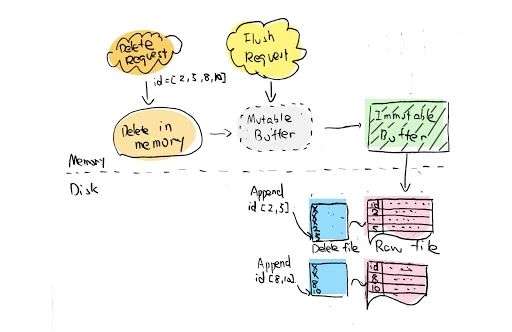 Delete
Request
Flush
Request
id=[2,5,8,10]
Delete in
memory
Mutable
Buffer
Immutable
Buffer
Memory
Disk
Append
id [2,5]
id
2
5
Delete file
Raw file
Append
id [8,10]
8
10
id
8
10